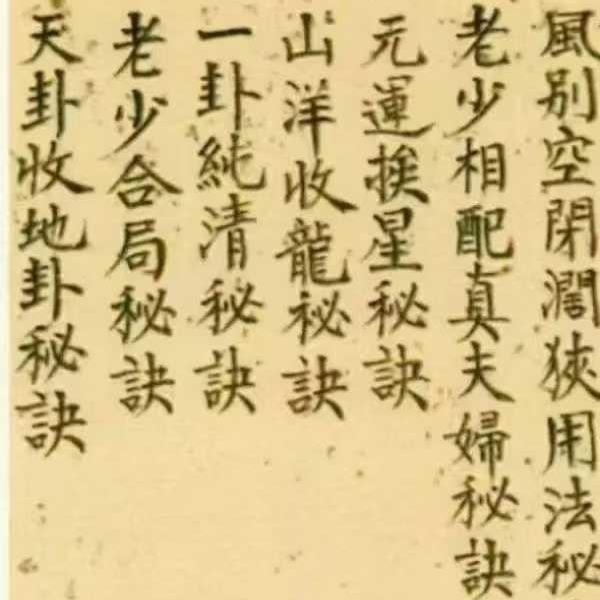 風別空閉濶狹用法秘
老少相配真夫婦秘訣
元運挨星秘訣
山洋收龍秘訣
一卦純清秘訣
老少合局秘訣
天卦收地卦秘訣